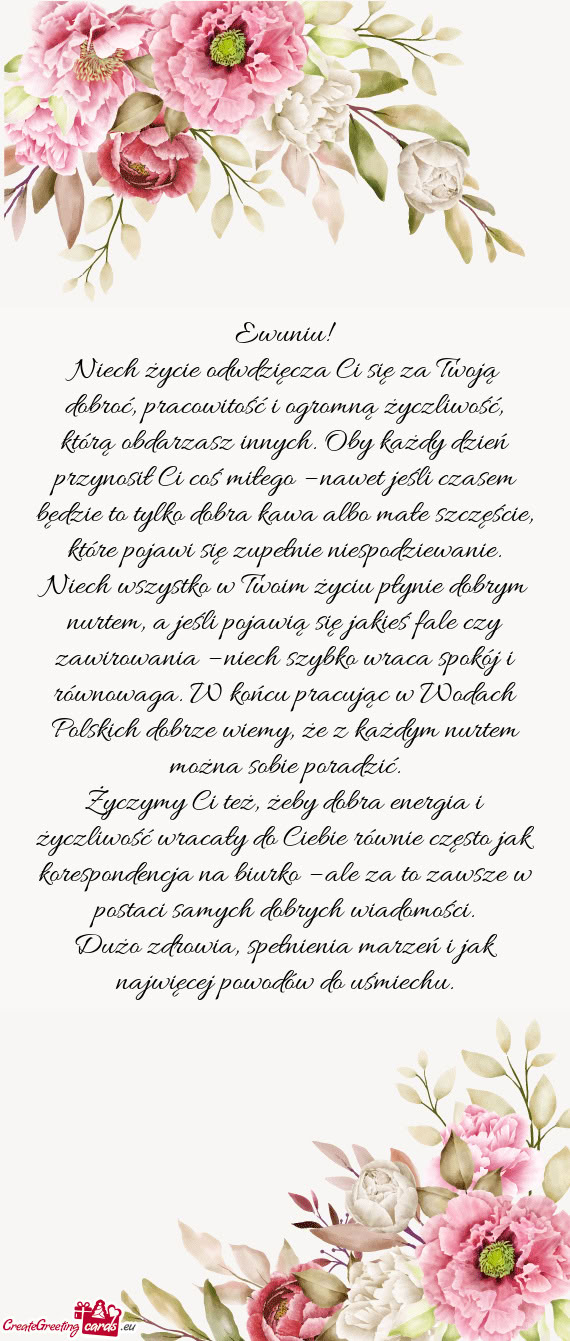 Ewuniu!
Niech życie odwdzięcza Ci się za Twoją
dobroć, pracowitość i ogromną życzliwość,
którą obdarzasz innych. Oby każdy dzień
przynosił Ci coś miłego –nawet jeśli czasem
będzie to tylko dobra kawa albo małe szczęście,
które pojawi się zupełnie niespodziewanie.
Niech wszystko w Twoim życiu płynie dobrym
nurtem, a jeśli pojawią się jakieś fale czy
zawirowania –niech szybko wraca spokój i
równowaga. W końcu pracując w Wodach
Polskich dobrze wiemy, że z każdym nurtem
można sobie poradzić.
Życzymy Ci też, żeby dobra energia i
życzliwość wracały do Ciebie równie często jak
korespondencja na biurko –ale za to zawsze w
postaci samych dobrych wiadomości.
Dużo zdrowia, spełnienia marzeń i jak
najwięcej powodów do uśmiechu.
CreateGreeting cards .eu